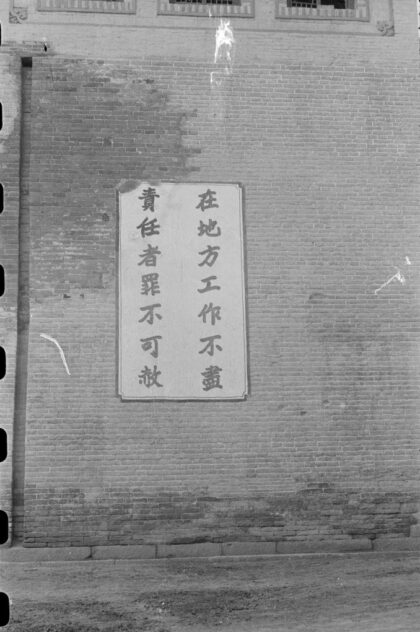 在地方工作不盡
責任者罪不可赦